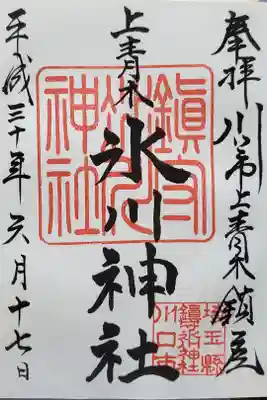 奉拝 川口市上青木鎮座
上青木
氷川神社
平成三十年六月十七日
鎮守
氷川
神社
埼玉縣
鎮守氷川神社
川口市